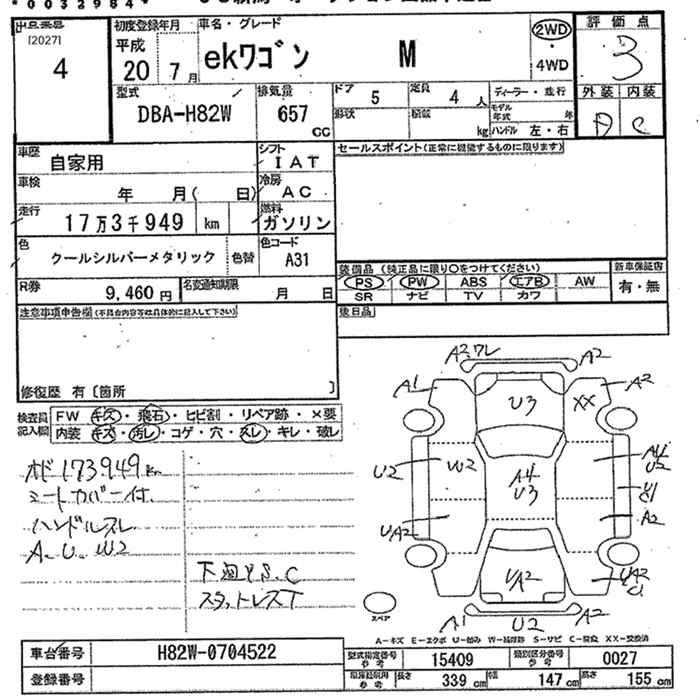 *0032984*
出品番号
[2027]
4
初度登録年月
平成
20年7月
車名・グレード
ekワゴン M
2WD
・
4WD
評価点
3
型式
DBA-H82W
排気量
657
CC
ドア 5
定員 4人
形状
積載 kg
ディーラー・並行
モデル年式 年
ハンドル 左・右
外装 内装
D C
車歴
自家用
シフト
IAT
セールスポイント(正常に機能するものに限ります)
車検
年 月( 日)
冷房
AC
走行
17万3千949 km
燃料
ガソリン
色
クールシルバーメタリック
色替
色コード
A31
装備品 (純正品に限り○をつけてください)
PS PW ABS エアB AW
SR ナビ TV カワ
新車保証書
有・無
R券
9,460円
名変通知期限
月 日
後日品
注意事項申告欄(不具合内容等は具体的に記入して下さい)
修復歴 有 〔箇所 〕
検査員記入欄
FW キズ・飛石・ヒビ割・リペア跡・×要
内装 キズ・汚レ・コゲ・穴・スレ・キレ・破レ
オド173949km
シートカバー付
ハンドルスレ
A、U、W2
下廻りS、C
スタットレスT
A2ワレ
A2
A1
A2
U3
XX
U2
W2
A4
U3
A4
U2
Y1
UA2
A2
UA2
UA2
C1
スペア
A1
U2
A2
A-キズ E-エクボ U-凹み W-補修跡 S-サビ C-腐食 XX-交換済
車台番号
H82W-0704522
登録番号
型式指定番号
参考
15409
類別区分番号
参考
0027
参考
長さ 339 cm
幅 147 cm
高さ 155 cm